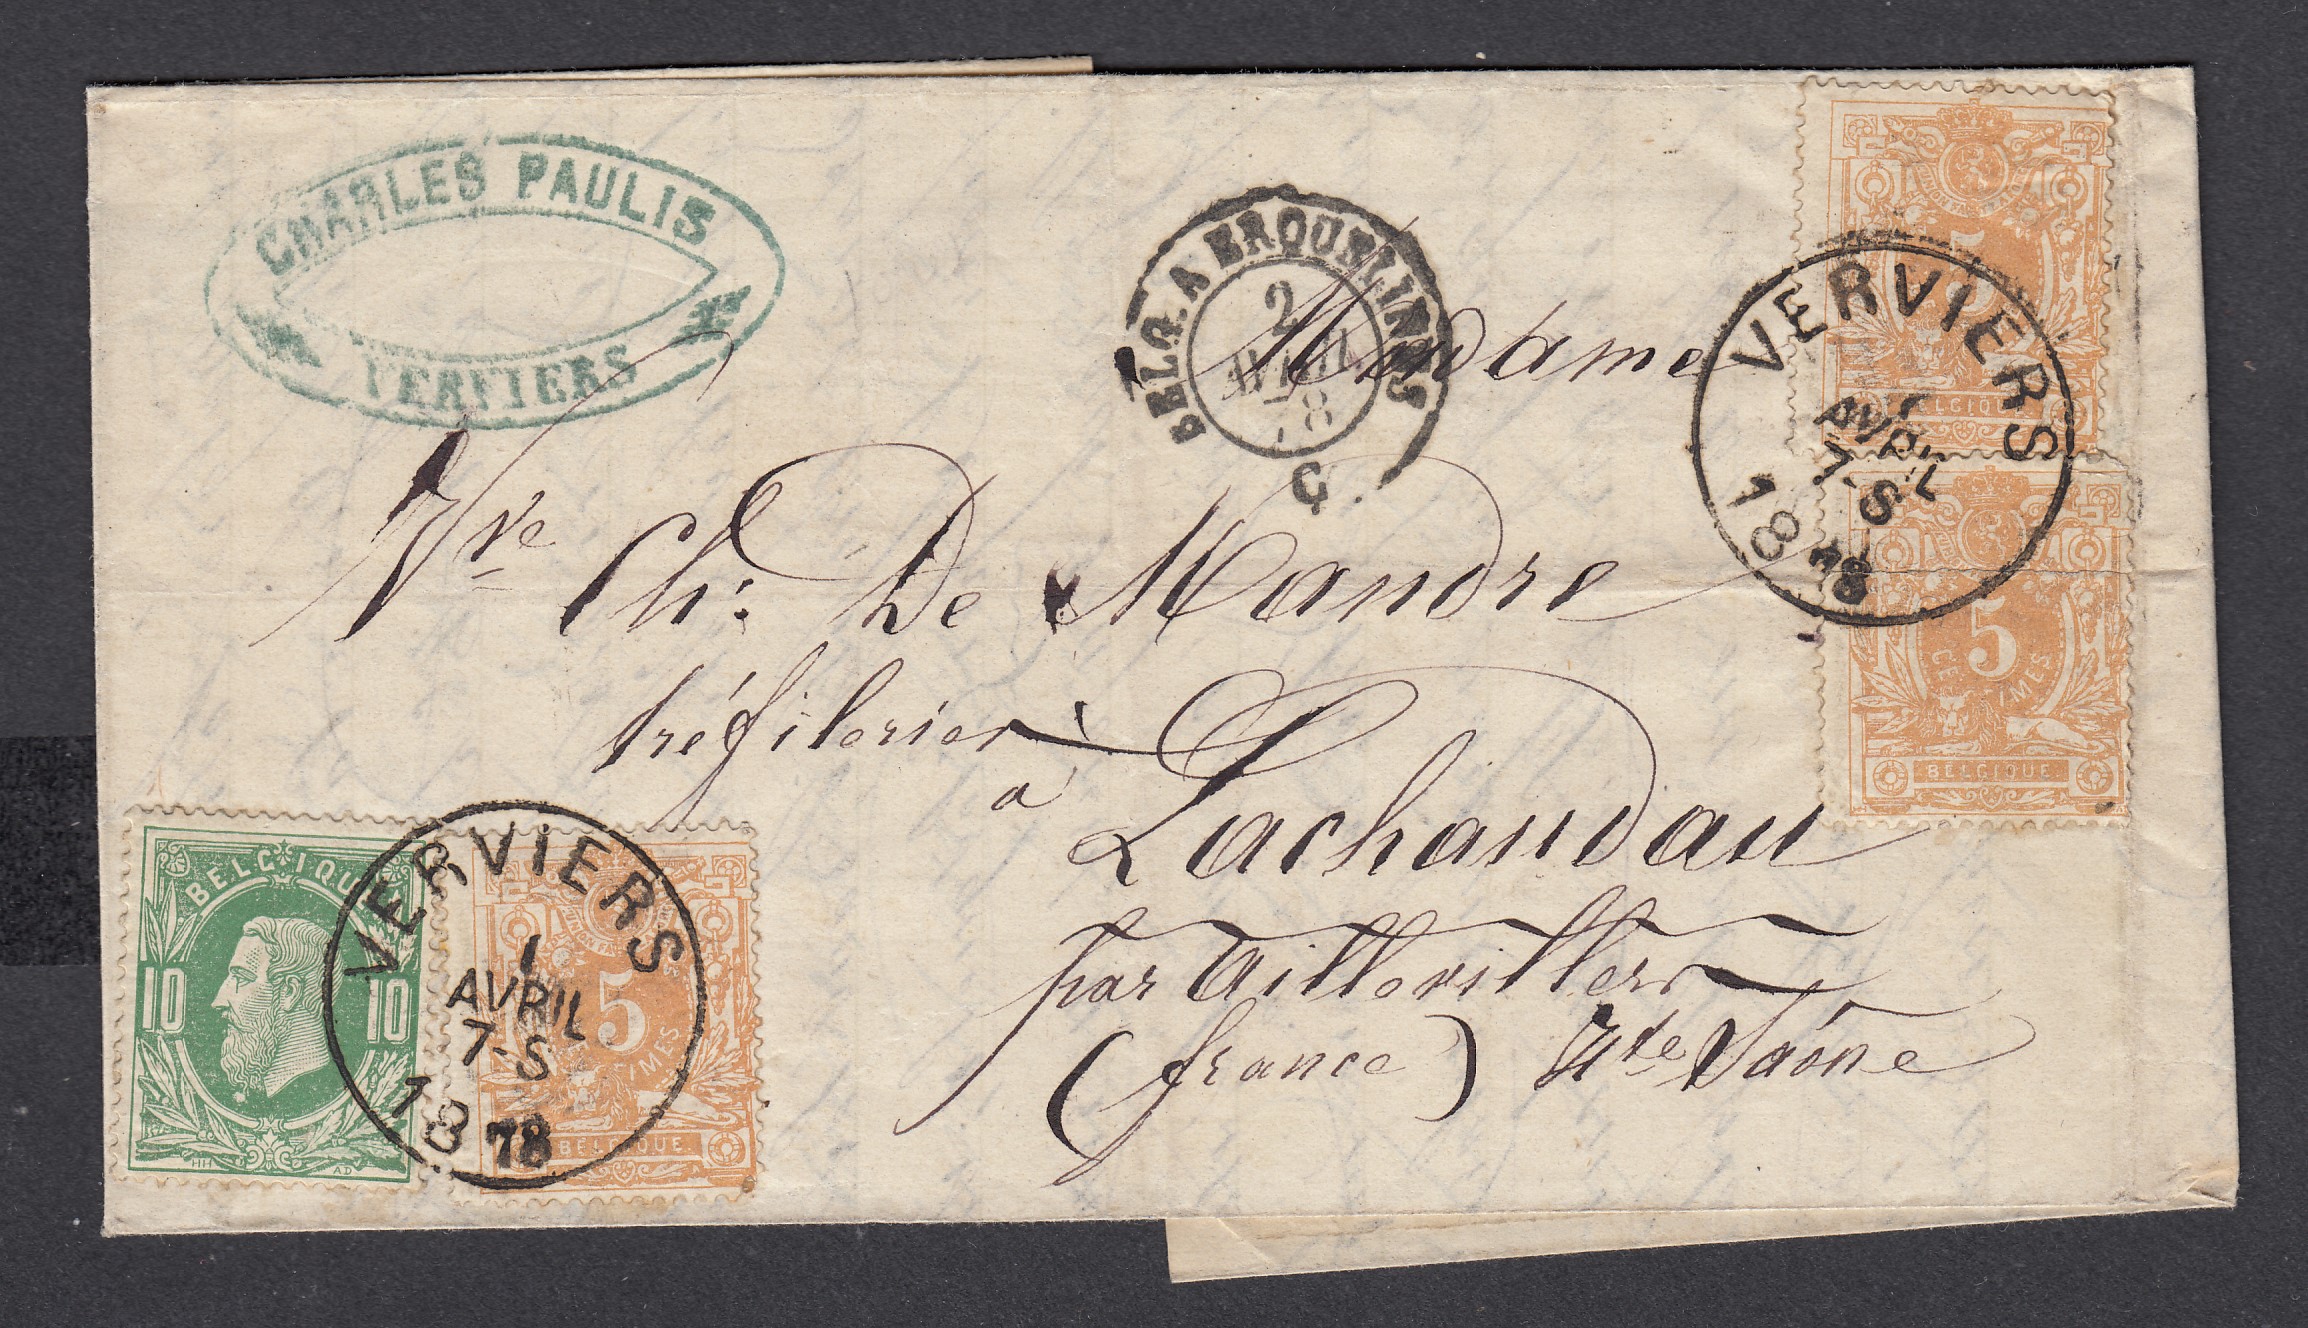 CHARLES PAULIS
VERVIERS
BELG. A ERQUELINES
2
AVRIL
78
C.
VERVIERS
1
AVRIL
7-S
1878
5
BELGIQUE
5
CENTIMES
BELGIQUE
Madame
Vve Ch. De Mandre
tréfileries
à
Lachaudau
par Aillevillers
(france) Hte Saône
BELGIQUE
10 10
HH AD
VERVIERS
1
AVRIL
7-S
1878
UNION FAIT
5
CENTIMES
BELGIQUE